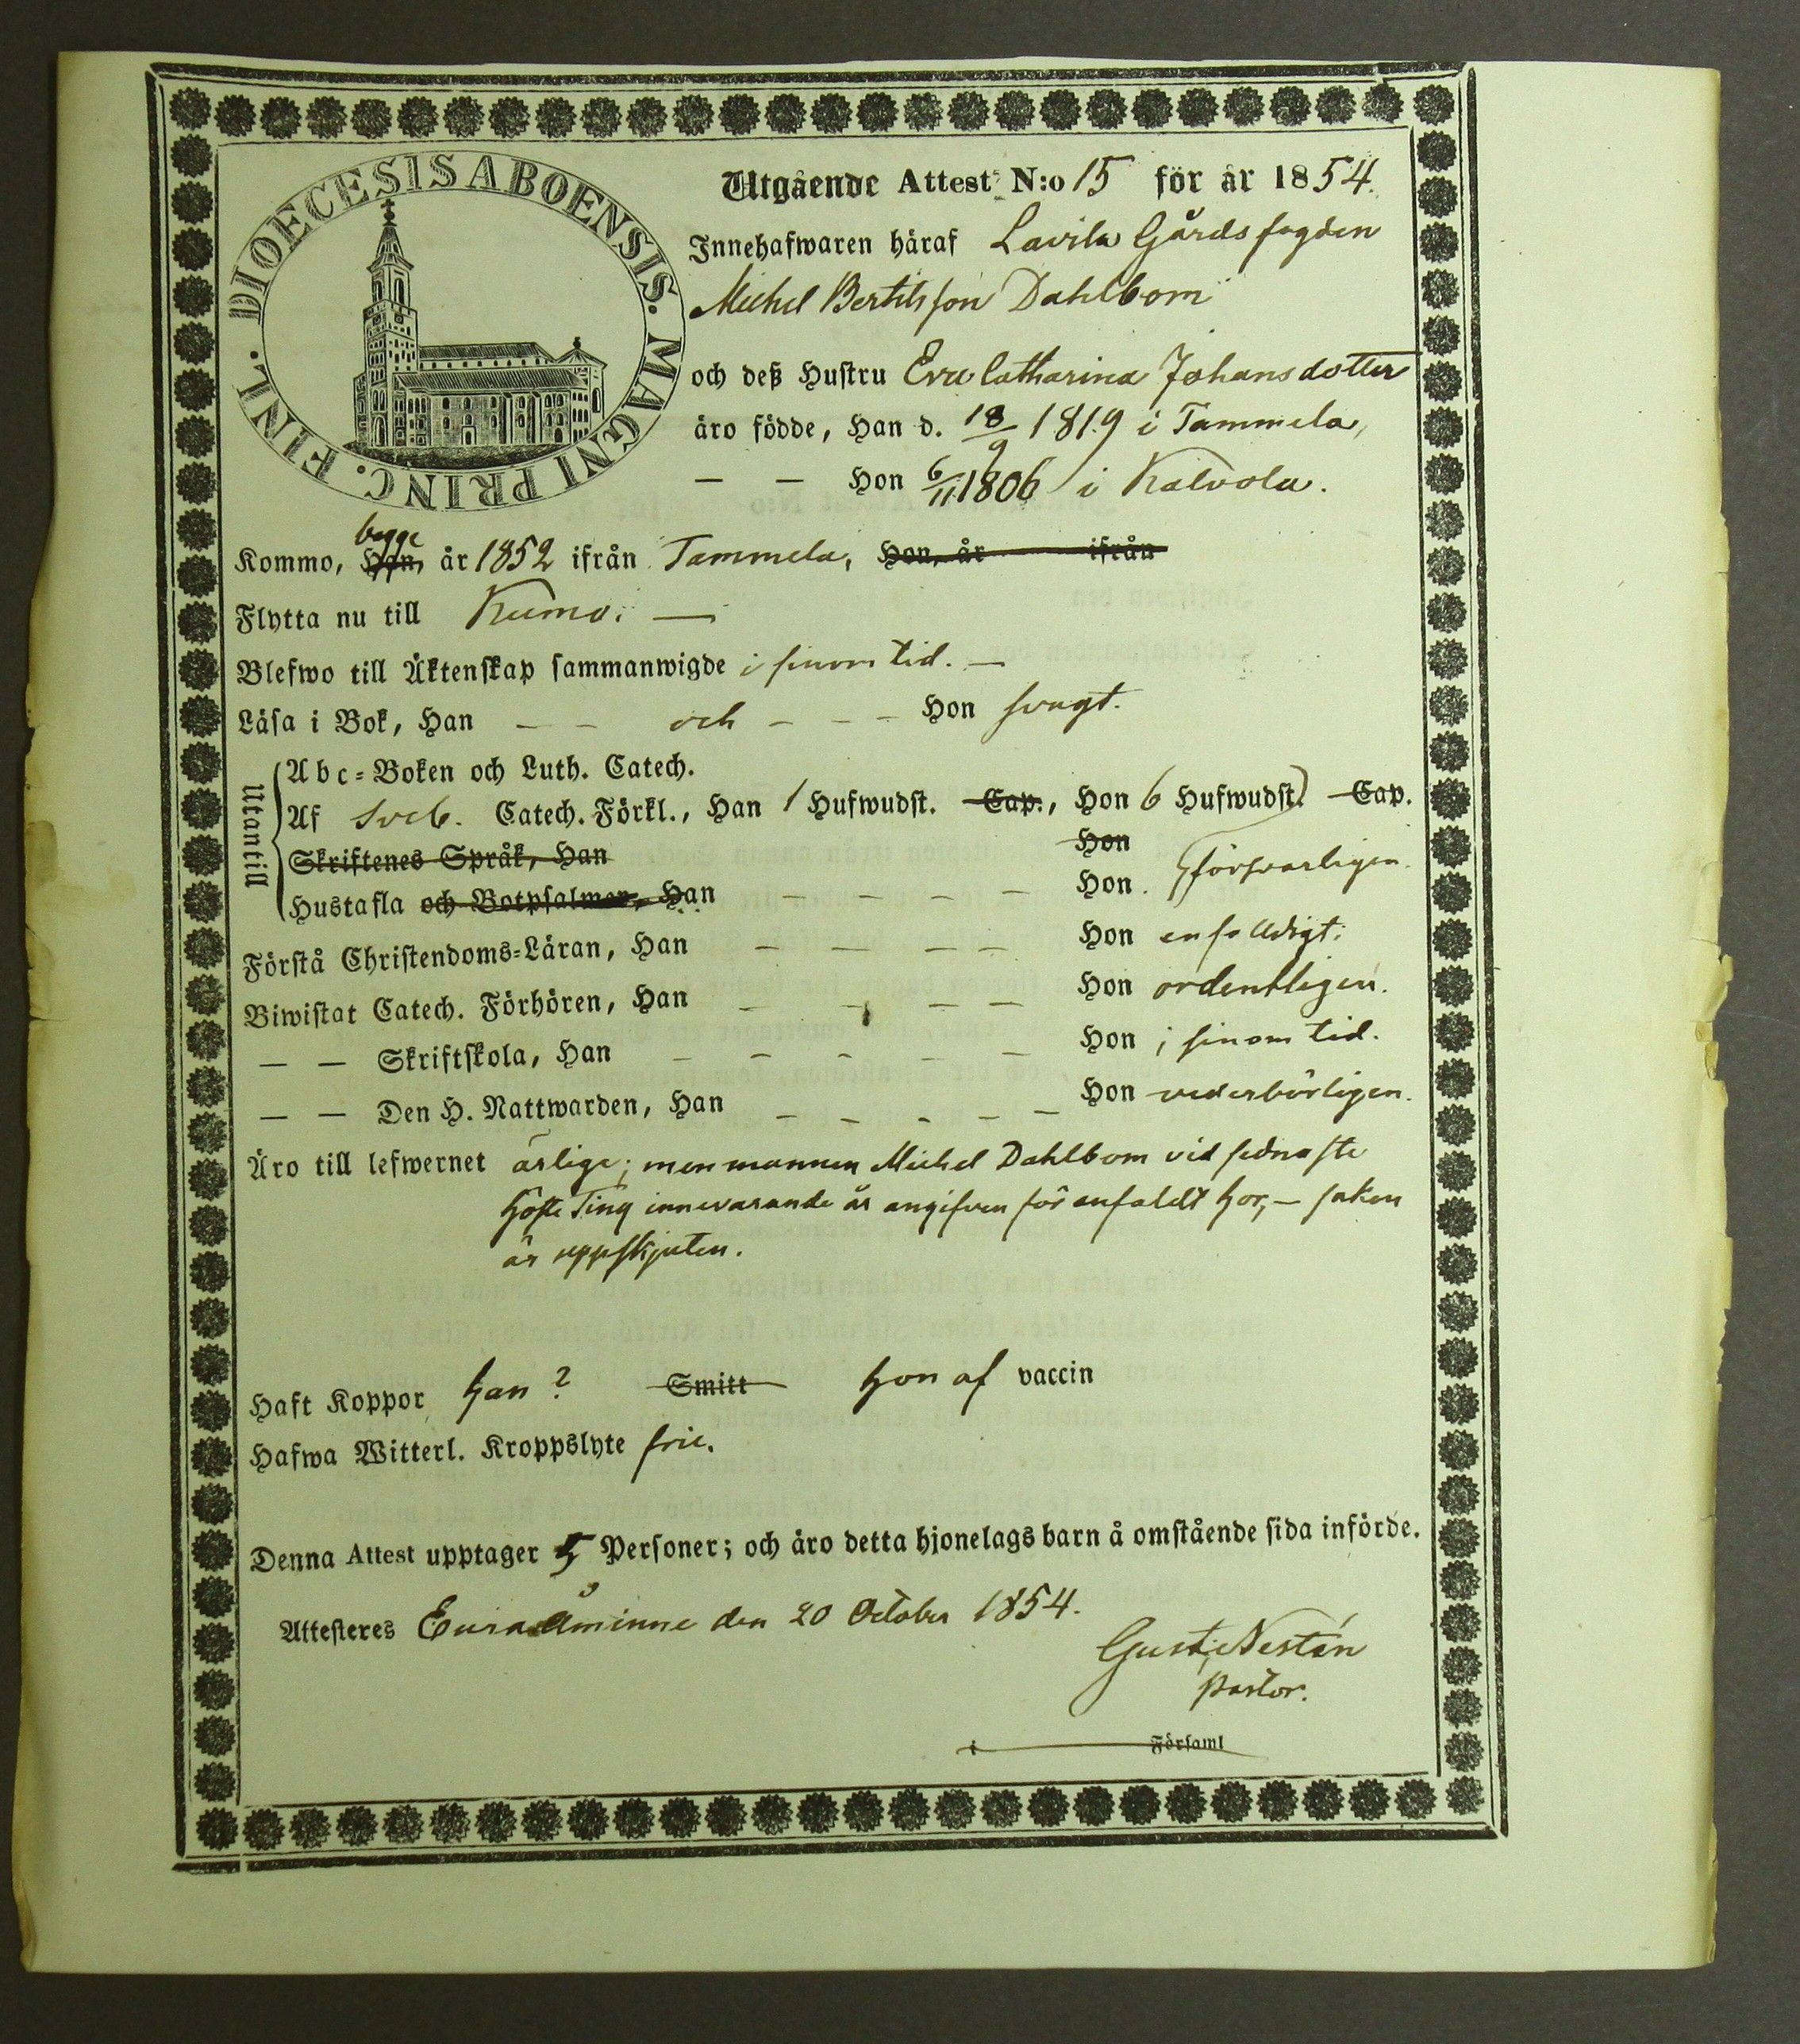 DIOECESIS ABOENSIS. MAGNI PRINC. FINL.
Utgående Attest N:o 15 för år 1854.
Innehafwaren häraf Lavila Gårdsfogden
Michel Bertilsson Dahlbom
och deß Hustru Eva Catharina Johansdotter
äro födde, Han d. 18/9 1819 i Tammela,
— — Hon 6/11 1806 i Kalvola.
begge
Kommo, Han, år 1852 ifrån Tammela, Hon, år ifrån
Flytta nu till Kumo. —
Blefwo till Äktenskap sammanwigde i sinom tid. —
Läsa i Bok, Han — — och — — — Hon svagt.
Utantill
Abc-Boken och Luth. Catech.
Af Sveb. Catech. Förkl., Han 1 Hufwudst. Cap., Hon 6 Hufwudst. Cap.
Skriftenes Språk, Han Hon
Hustafla och Botpsalmer, Han — — — — Hon försvarligen.
Förstå Christendoms-Läran, Han — — — — Hon enfaldigt.
Biwistat Catech. Förhören, Han — — — — Hon ordentligen.
— — Skriftskola, Han — — — — — Hon i sinom tid.
— — Den H. Nattwarden, Han — — — — — Hon vederbörligen.
Äro till lefwernet ärlige; men mannen Michel Dahlbom vid sednaste
höste Ting innevarande år angifven för enfaldt hor, — saken
är uppskjuten.
Haft Koppor han? Smitt hon af vaccin
Hafwa Witterl. Kroppslyte frie.
Denna Attest upptager 5 Personer; och äro detta hjonelags barn å omstående sida införde.
Attesteres Euraåminne den 20 October 1854.
Gust. Nestén
Pastor.
i Församl